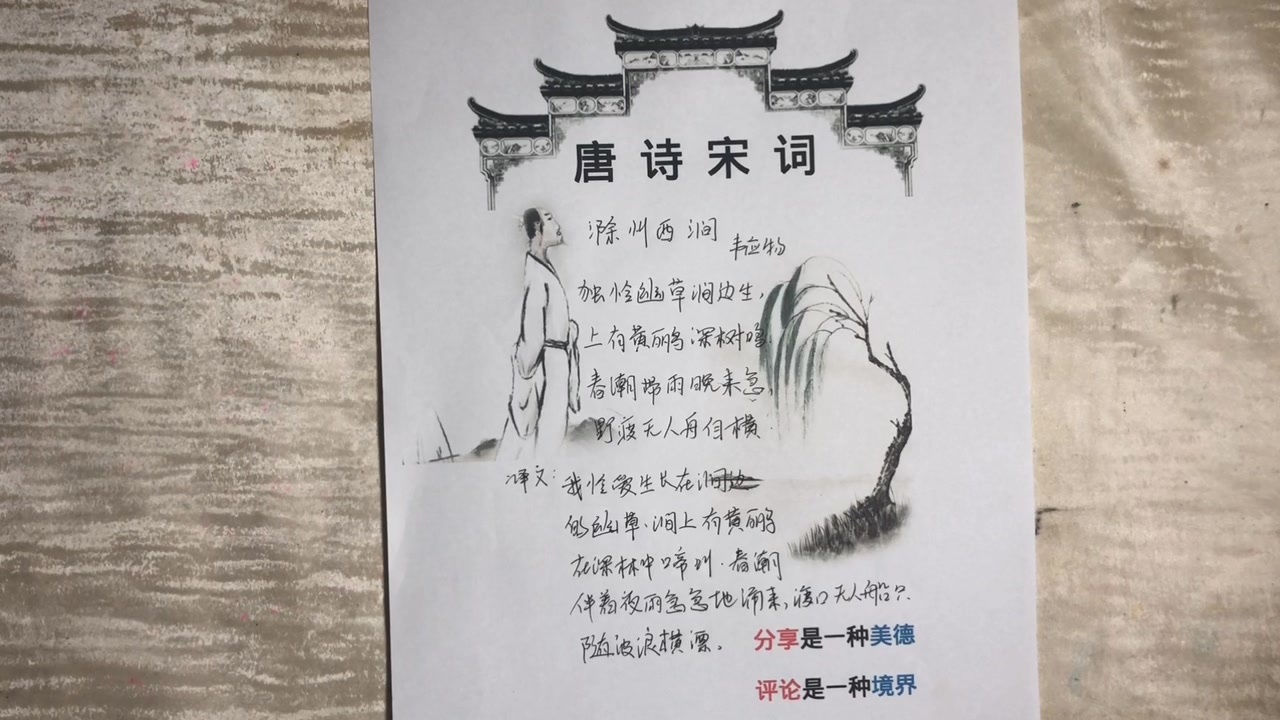 唐诗宋词
滁州西涧
韦应物
独怜幽草涧边生,
上有黄鹂深树鸣.
春潮带雨晚来急,
野渡无人舟自横.
译文: 我怜爱生长在涧
的幽草.涧上有黄鹂
在深林中啼叫.春潮
伴着夜雨急急地涌来,渡口无人船只
随波浪横漂。
分享是一种美德
评论是一种境界